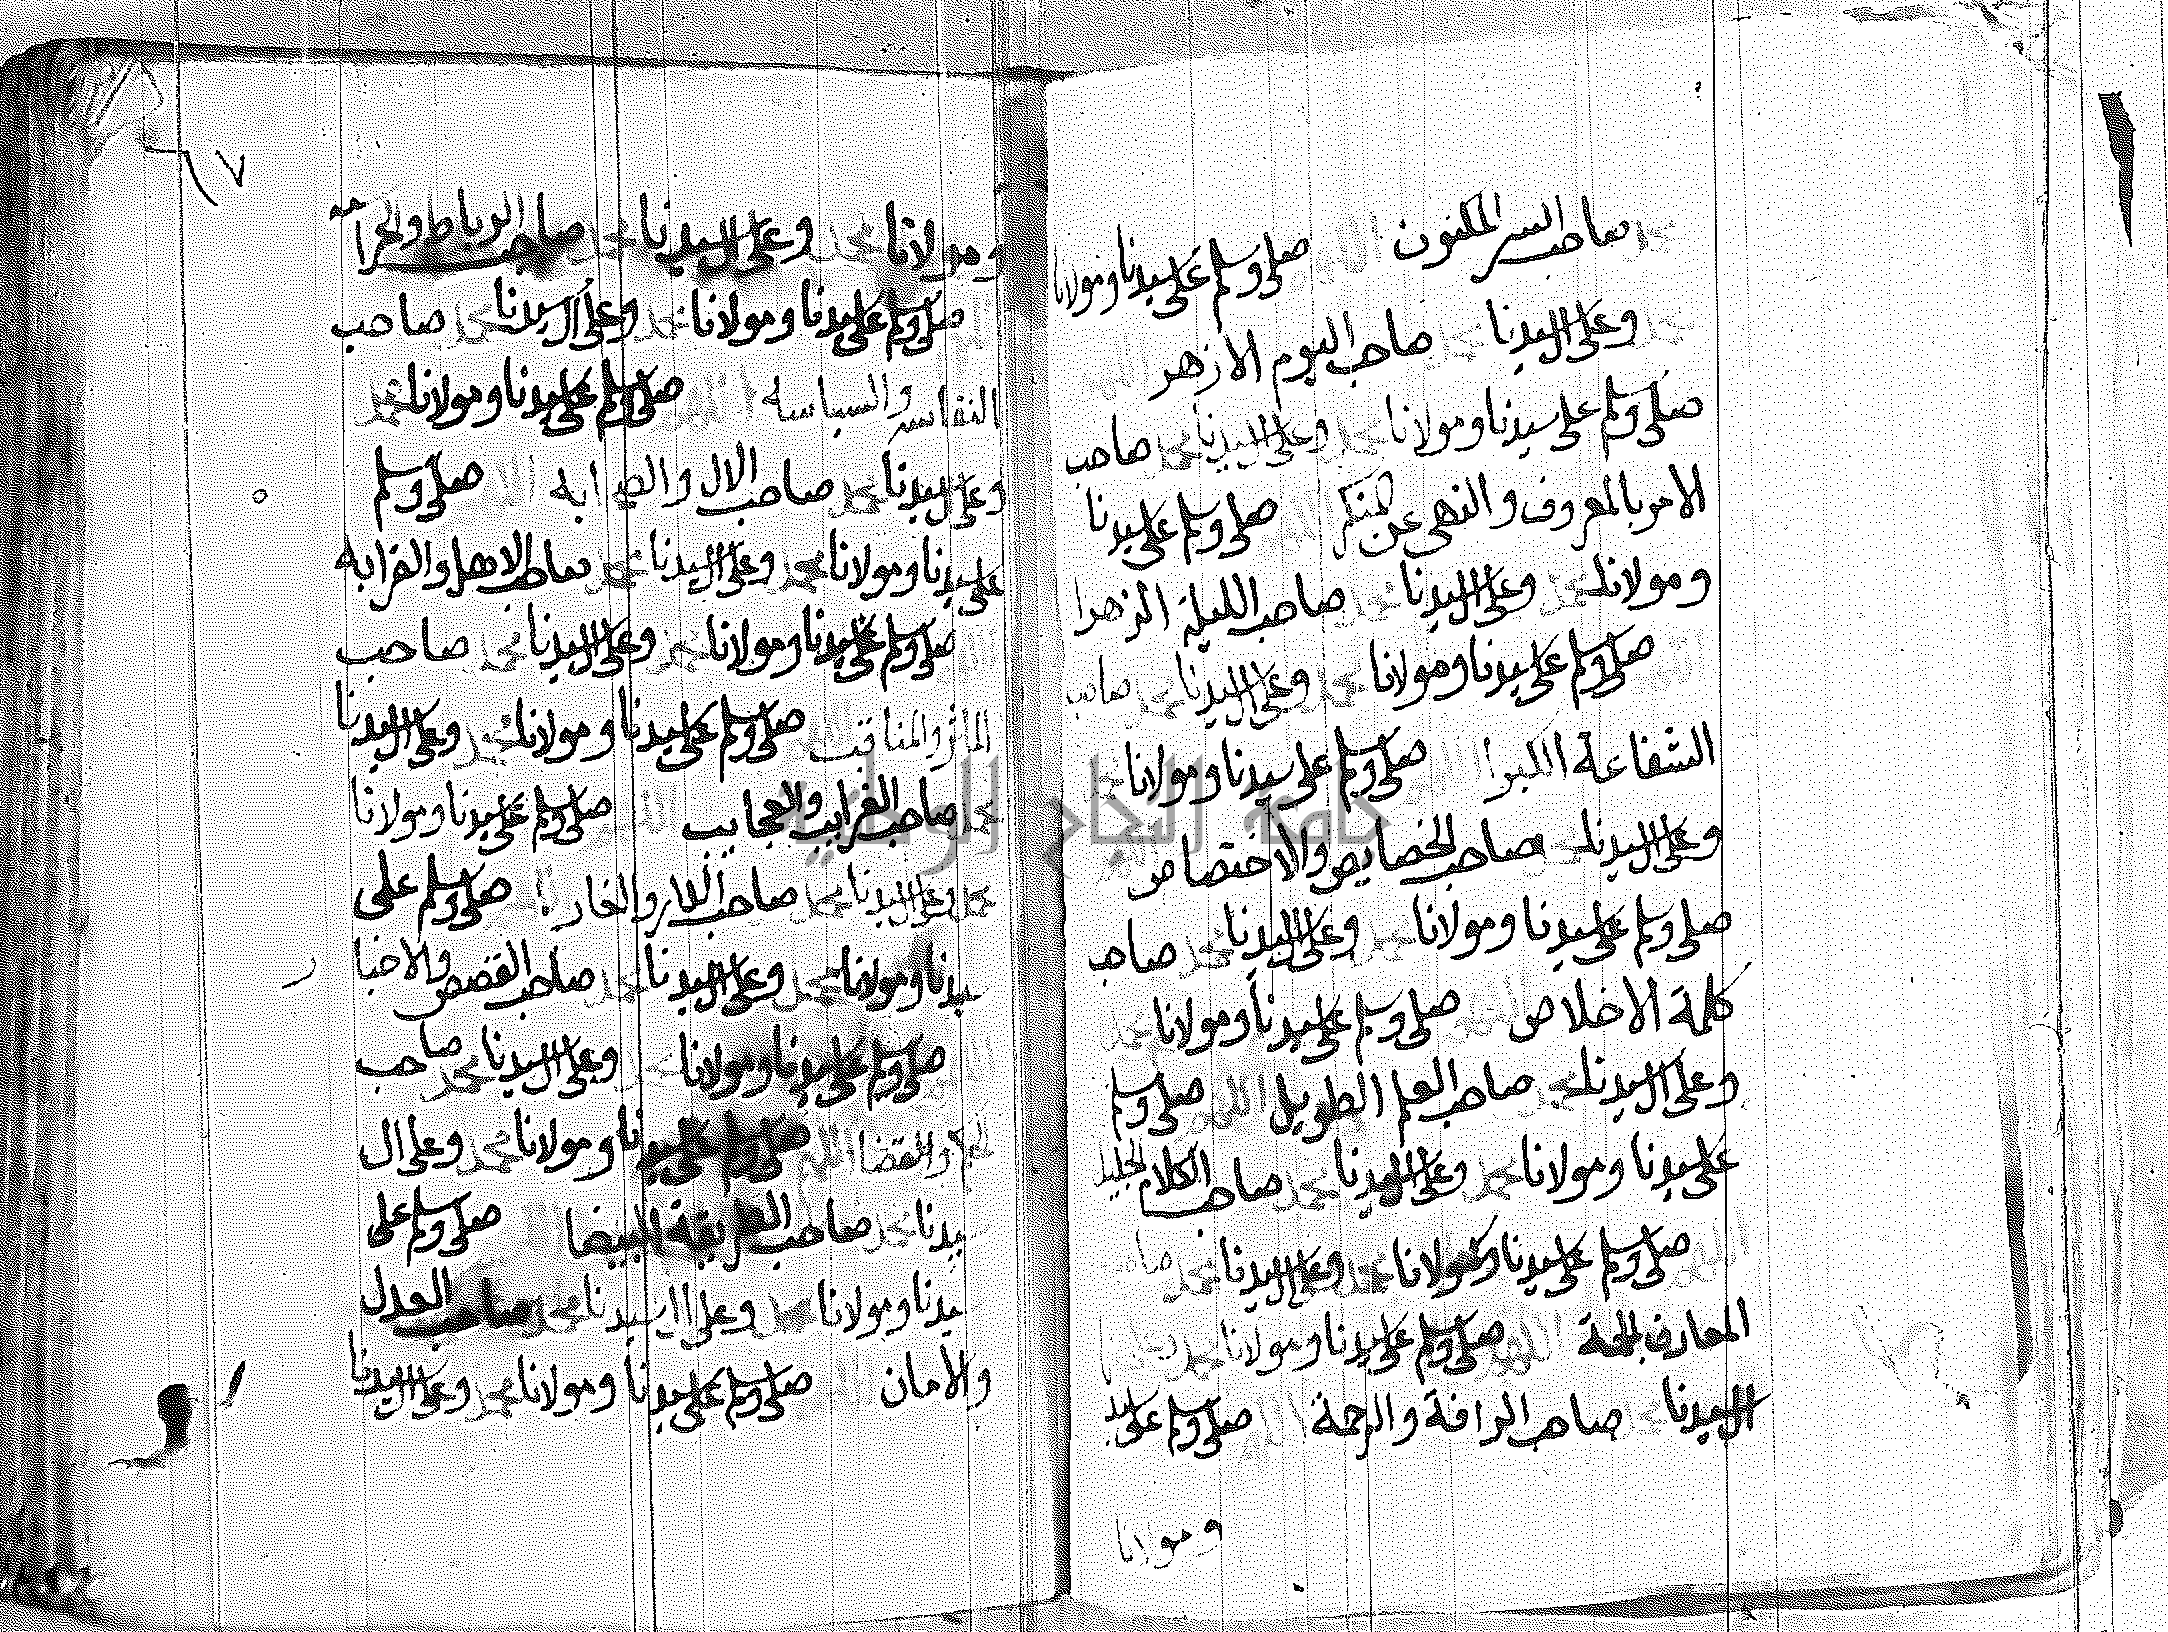 محمد صاحب السر المكنون اللهم صلى وسلم على سيدنا ومولانا
محمد وعلى ال سيدنا محمد صاحب اليوم الازهر
صلى وسلم على سيدنا ومولانا محمد وعلى ال سيدنا محمد صاحب
الامر بالمعروف والنهى عن المنكر صلى وسلم على سيدنا
ومولانا محمد وعلى ال سيدنا محمد صاحب الليلة الزهرا
صلى وسلم على سيدنا ومولانا محمد وعلى ال سيدنا محمد صاحب
الشفاعة الكبرا صلى وسلم على سيدنا ومولانا محمد
وعلى ال سيدنا محمد صاحب الخصايص والاختصاص
صلى وسلم على سيدنا ومولانا محمد وعلى ال سيدنا محمد صاحب
كلمة الاخلاص صلى وسلم على سيدنا ومولانا محمد
وعلى ال سيدنا محمد صاحب العلم الطويل اللهم صلى وسلم
على سيدنا ومولانا محمد وعلى ال سيدنا محمد صاحب الكلام الجليل
اللهم صلى وسلم على سيدنا ومولانا محمد وعلى ال سيدنا محمد صاحب
المعارف الجمة اللهم صلى وسلم على سيدنا ومولانا محمد وعلى
ال سيدنا محمد صاحب الرافة والرحمة صلى وسلم على سيدنا
ومولانا
١٧
ومولانا محمد وعلى ال سيدنا محمد صاحب الرباط والحرامه
صلى وسلم على سيدنا ومولانا محمد وعلى ال سيدنا محمد صاحب
والسياسه صلى وسلم على سيدنا ومولانا محمد
وعلى ال سيدنا محمد صاحب الال والصحابه صلى وسلم
على سيدنا ومولانا محمد وعلى ال سيدنا محمد صاحب الاهل والقرابه
صلى وسلم على سيدنا ومولانا محمد وعلى ال سيدنا محمد صاحب
الماثر والمناقب صلى وسلم على سيدنا ومولانا محمد وعلى ال سيدنا
محمد صاحب الغرايب والعجايب صلى وسلم على سيدنا ومولانا
محمد وعلى ال سيدنا محمد صاحب صلى وسلم على
سيدنا ومولانا محمد وعلى ال سيدنا محمد صاحب القصص والاخبا
ر
صلى وسلم على سيدنا ومولانا محمد وعلى ال سيدنا محمد صاحب
الحكم والقضا اللهم صلى وسلم على سيدنا ومولانا محمد وعلى ال
سيدنا محمد صاحب الطريقة البيضا صلى وسلم على
سيدنا ومولانا محمد وعلى ال سيدنا محمد صاحب العدل
والامان صلى وسلم على سيدنا ومولانا محمد وعلى ال سيدنا
جامعة النجاح الوطنية